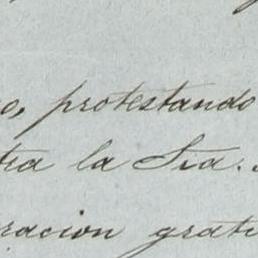 o, protestando
tra la Sra.
racion grati